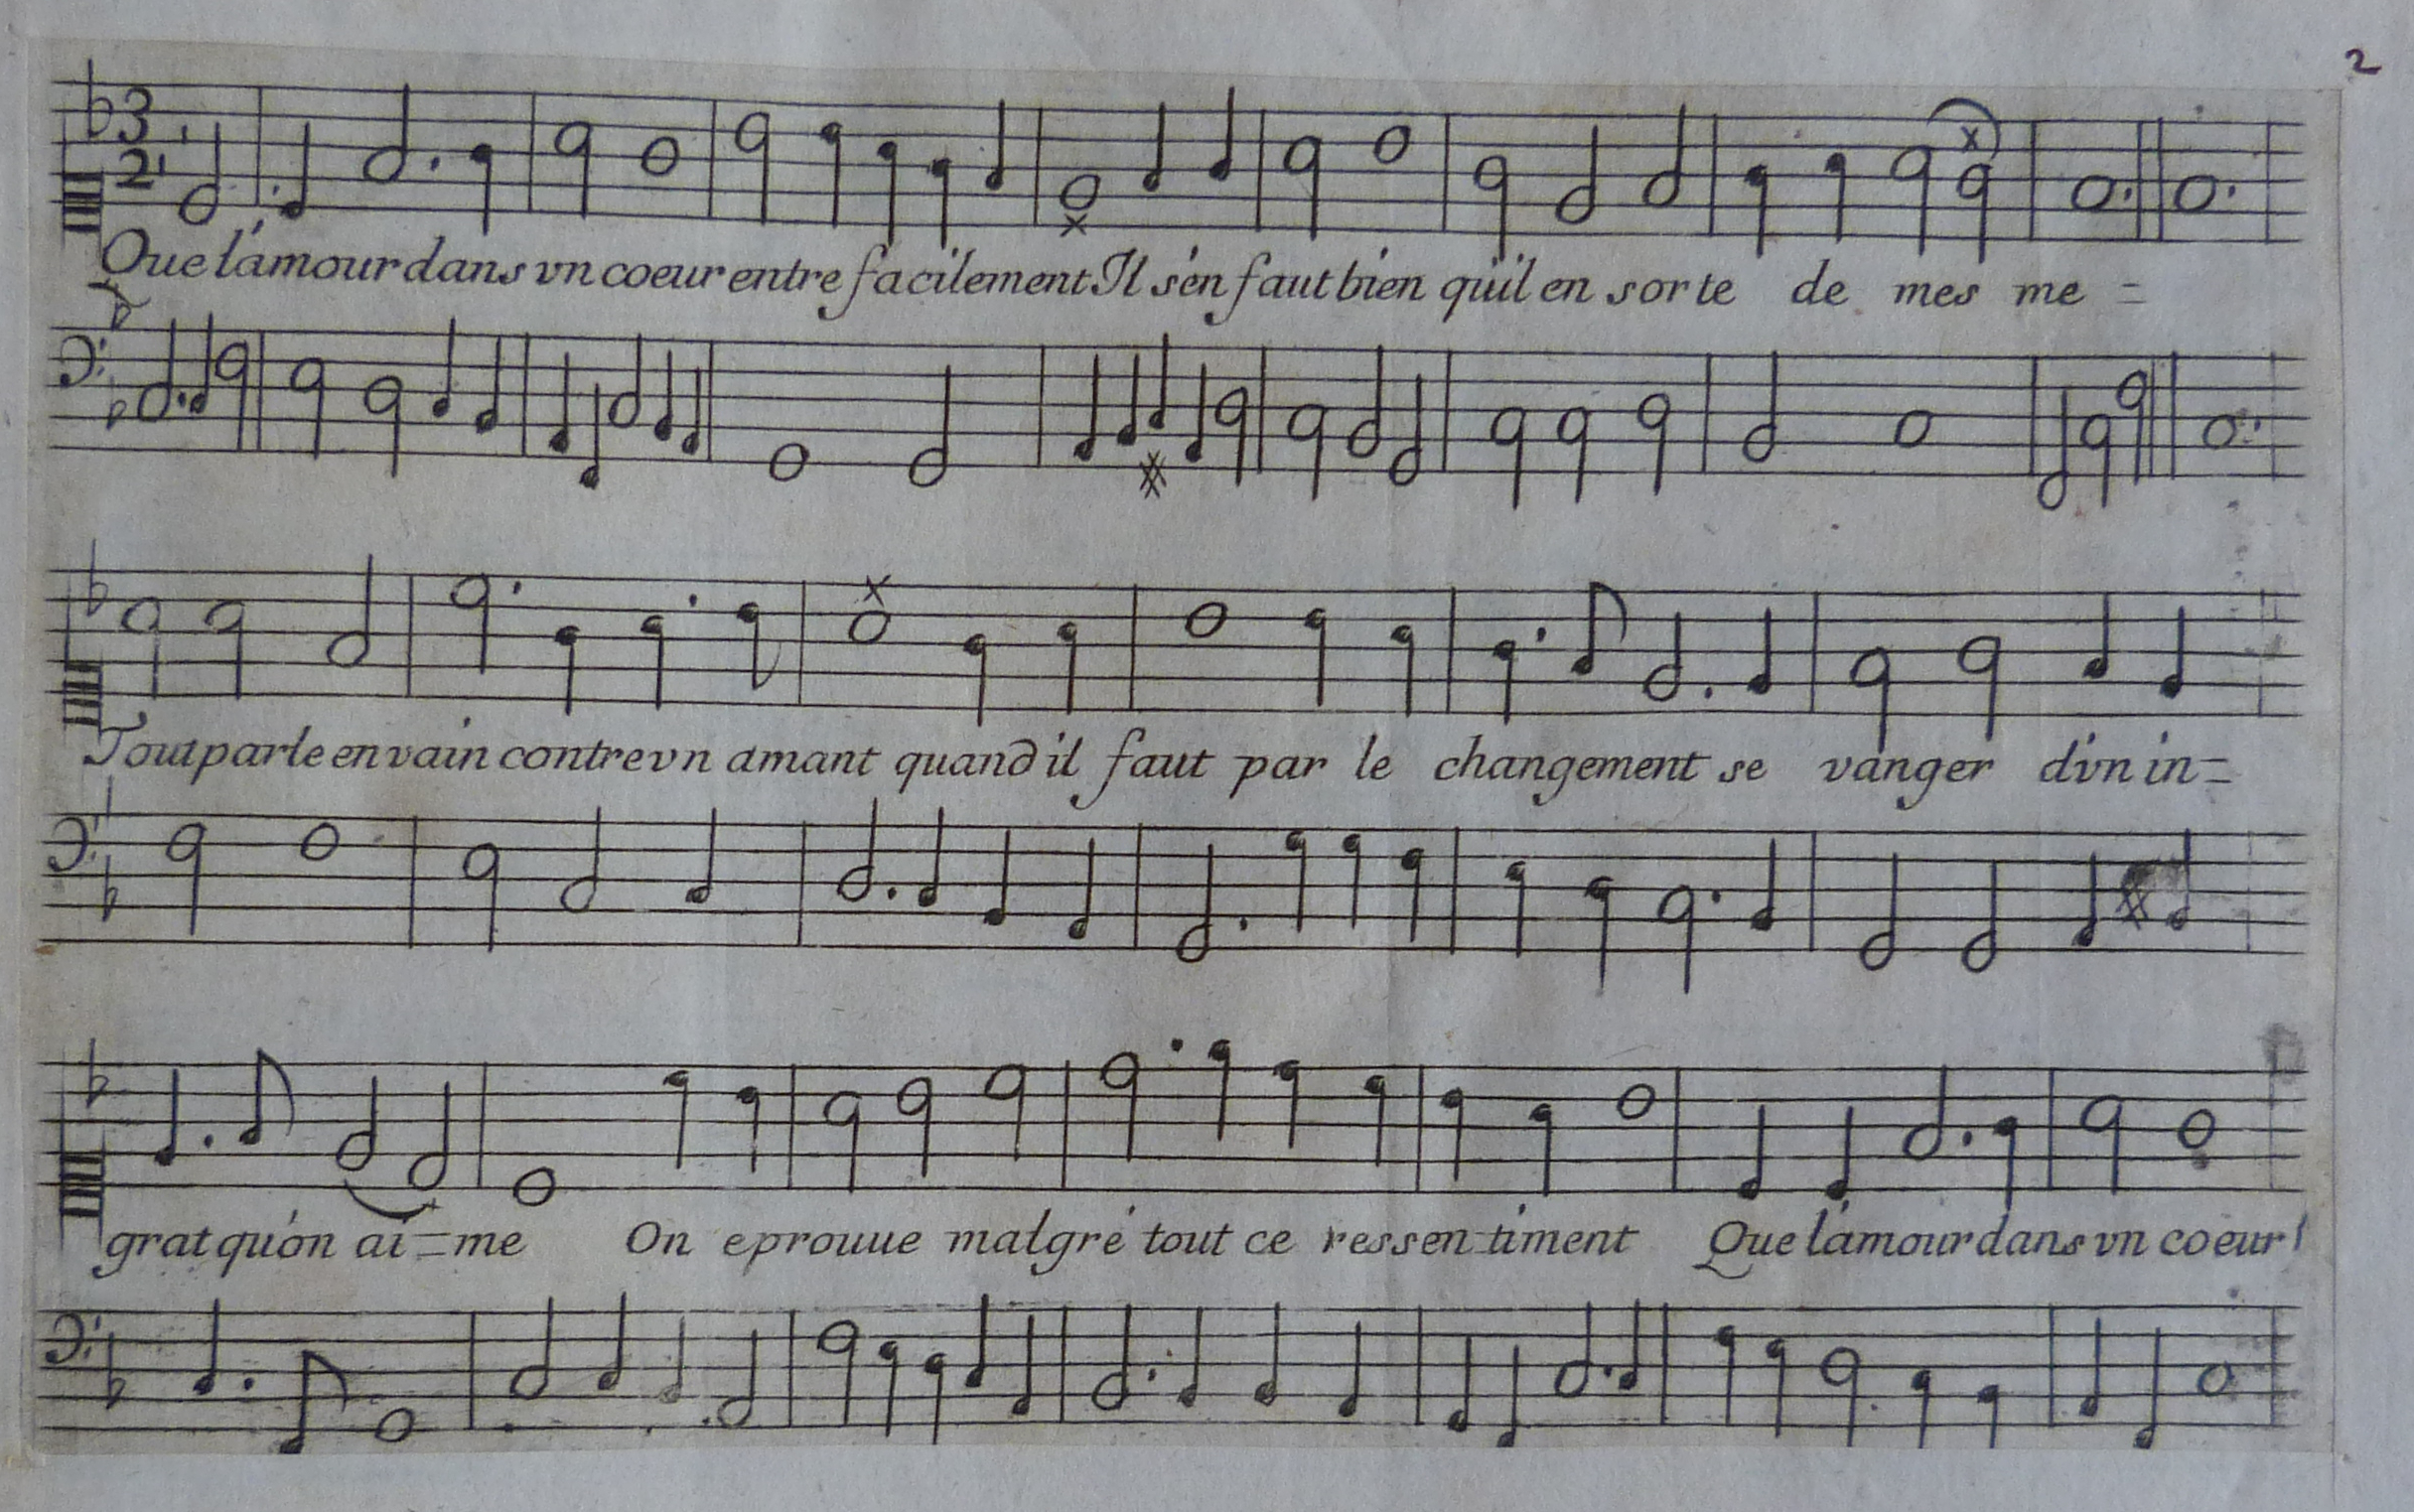 2
3
2
Que l'amour dans vn coeur entre facilement Il s'en faut bien qu'il en sorte de mes me =
Tout parle en vain contre vn amant quand il faut par le changement se vanger d'vn in=
grat qu'on ai=me On eprouue malgré tout ce ressentiment Que l'amour dans vn coeur